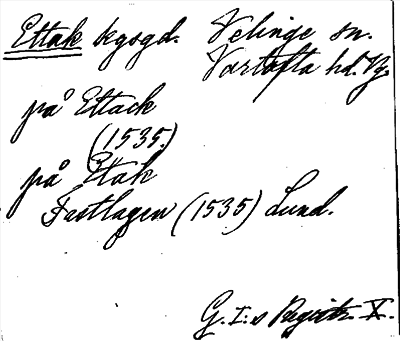 Ettak kgsgd. Velinge sn.
Vartofta hd. Vg.
på Ettack
(1535.)
på Etak
Fastlagen (1535) Lund.
G. I:s Registr. X.